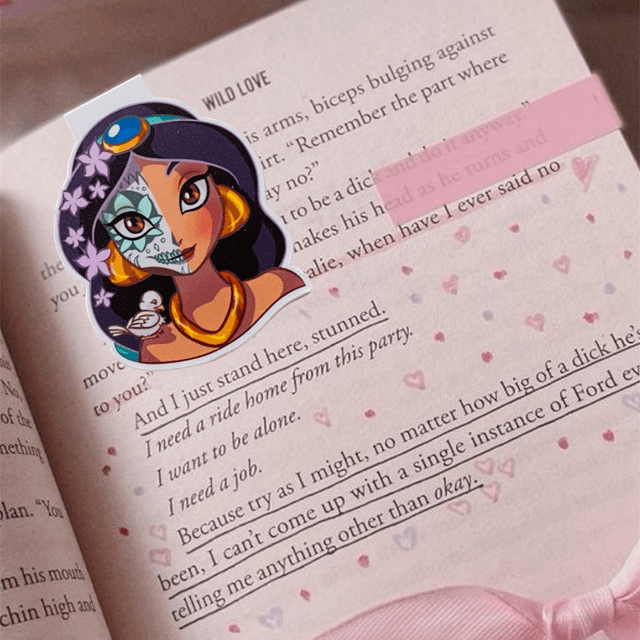 WILD LOVE
is arms, biceps bulging against
irt. "Remember the part where
ay no?"
to be a dick and do it anyway."
makes his head as he turns and
alie, when have I ever said no
the
you
move
to you?"
And I just stand here, stunned.
I need a ride home from this party.
I want to be alone.
I need a job.
Because try as I might, no matter how big of a dick he's
been, I can't come up with a single instance of Ford ev
telling me anything other than okay.
No,
of the
mething
plan. "You
m his mouth
chin high and